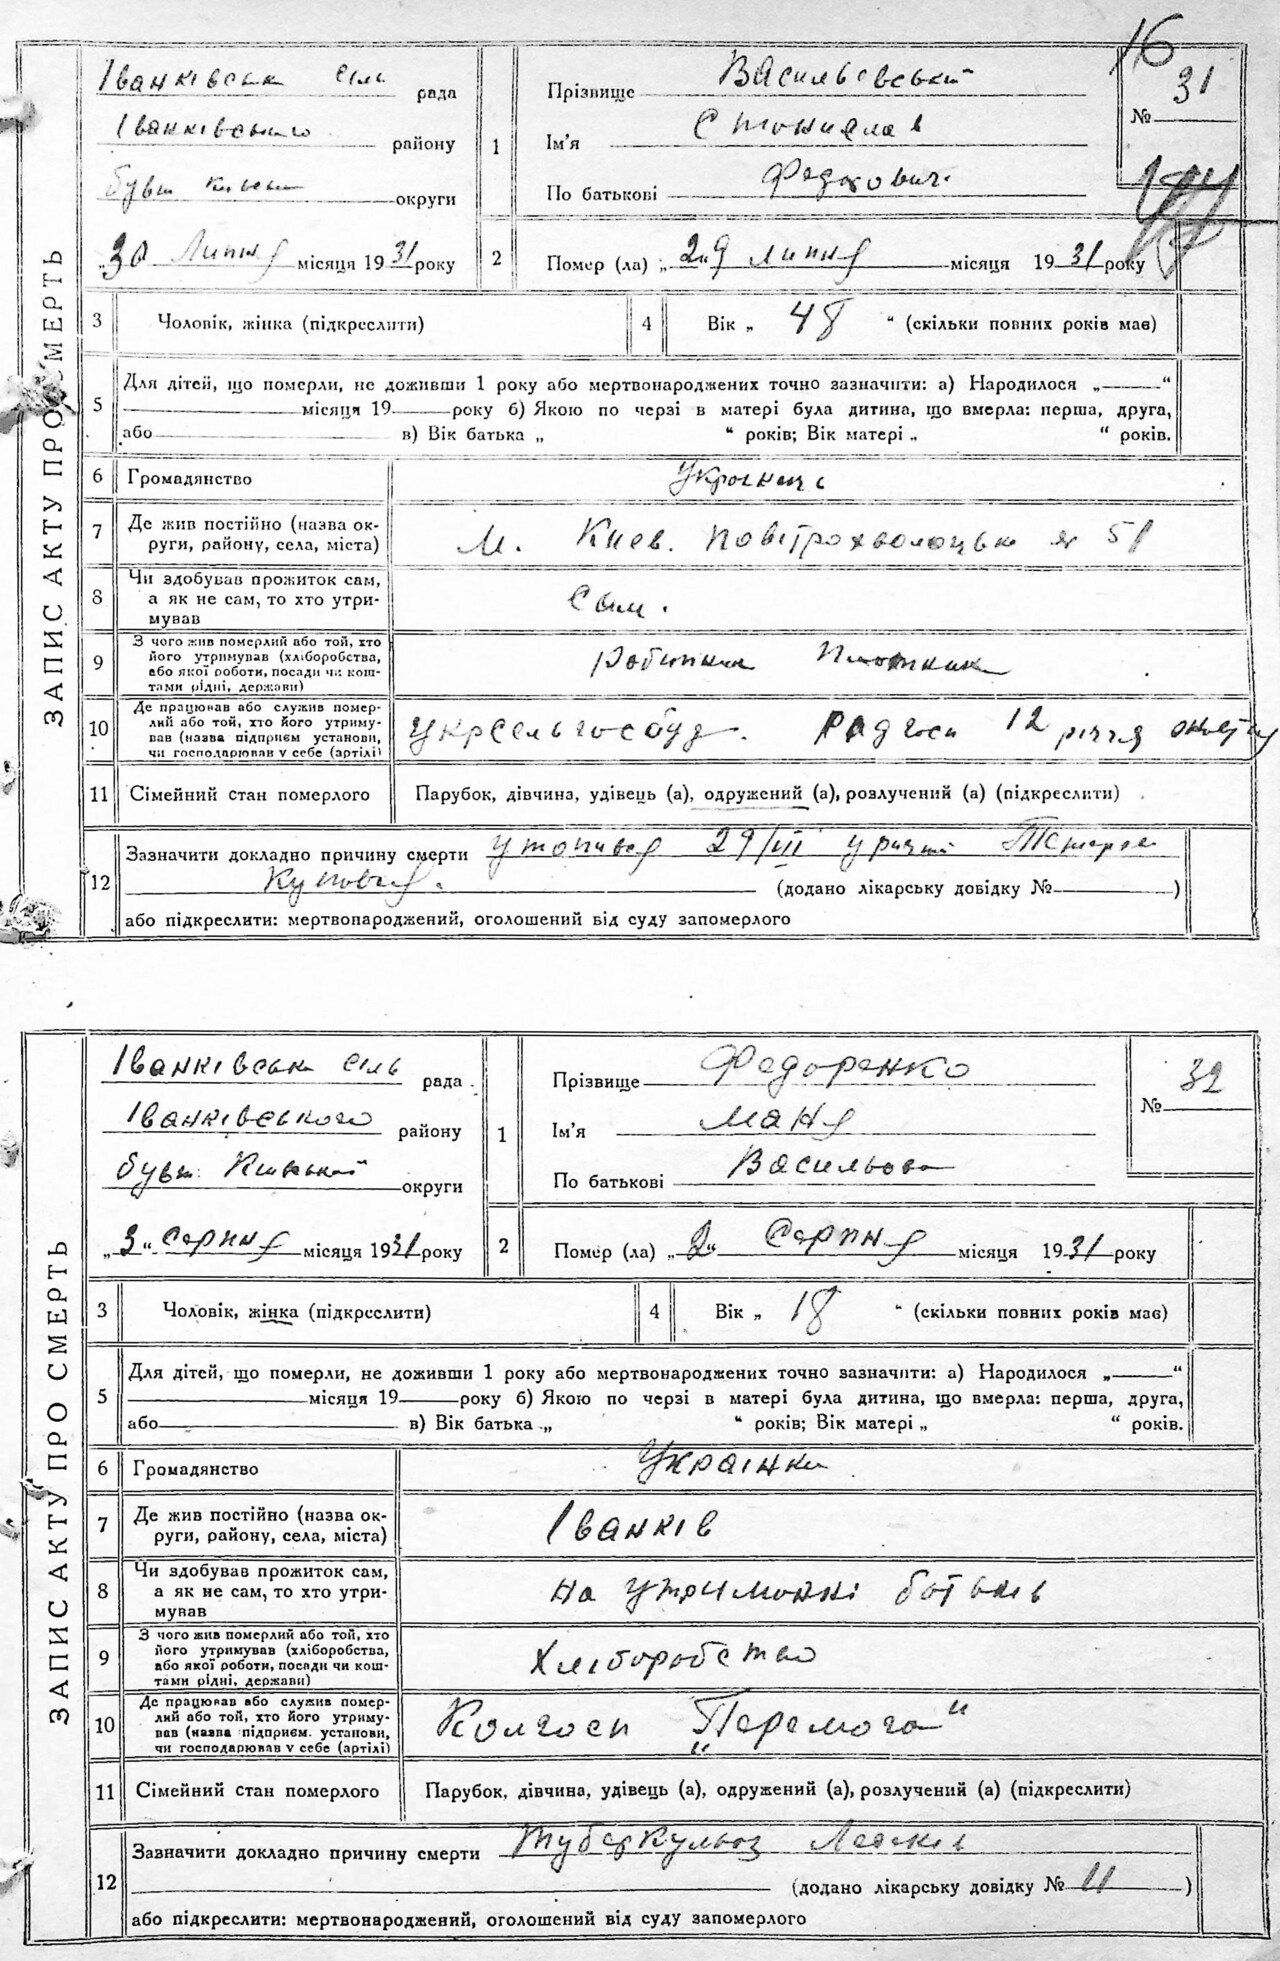 16
ЗАПИС АКТУ ПРО СМЕРТЬ
Іванківська сіль рада
Іванківського району
бувш округи
30 Липня місяця 1931 року
1
Прізвище Васильєвський
Ім'я
По батькові
№ 31
2
Помер (ла) „29 липня місяця 1931 року
3
Чоловік, жінка (підкреслити)
4
Вік „ 48 “ (скільки повних років має)
5
Для дітей, що померли, не доживши 1 року або мертвонароджених точно зазначити: а) Народилося „ “
місяця 19 року б) Якою по черзі в матері була дитина, що вмерла: перша, друга,
або в) Вік батька „ “ років; Вік матері „ “ років.
6
Громадянство
7
Де жив постійно (назва ок-
руги, району, села, міста)
М. Киев. 51
8
Чи здобував прожиток сам,
а як не сам, то хто утри-
мував
Сам.
9
З чого жив померлий або той, хто
його утримував (хліборобства,
або якої роботи, посади чи кош-
тами рідні, держави)
10
Де працював або служив помер-
лий або той, хто його утриму-
вав (назва підприєм установи,
чи господарював у себе (артілі)
Укрсельгосбуд. Радгосп 12 річчя
11
Сімейний стан померлого
Парубок, дівчина, удівець (а), одружений (а), розлучений (а) (підкреслити)
12
Зазначити докладно причину смерти утопився 29/VII у річці
(додано лікарську довідку № )
або підкреслити: мертвонароджений, оголошений від суду запомерлого
ЗАПИС АКТУ ПРО СМЕРТЬ
Іванківська сіль рада
Іванківського району
бувш. округи
„3“ Серпня місяця 1931 року
1
Прізвище Федоренко
Ім'я Маня
По батькові
№ 32
2
Помер (ла) „2“ Серпня місяця 1931 року
3
Чоловік, жінка (підкреслити)
4
Вік „ 18 “ (скільки повних років має)
5
Для дітей, що померли, не доживши 1 року або мертвонароджених точно зазначити: а) Народилося „ “
місяця 19 року б) Якою по черзі в матері була дитина, що вмерла: перша, друга,
або в) Вік батька „ “ років; Вік матері „ “ років.
6
Громадянство
Українка
7
Де жив постійно (назва ок-
руги, району, села, міста)
Іванків
8
Чи здобував прожиток сам,
а як не сам, то хто утри-
мував
на утриманні батьків
9
З чого жив померлий або той, хто
його утримував (хліборобства,
або якої роботи, посади чи кош-
тами рідні, держави)
Хліборобство
10
Де працював або служив помер-
лий або той, хто його утриму-
вав (назва підприєм. установи,
чи господарював у себе (артілі)
Колгосп „Перемога“
11
Сімейний стан померлого
Парубок, дівчина, удівець (а), одружений (а), розлучений (а) (підкреслити)
12
Зазначити докладно причину смерти Туберкульоз Легенів
(додано лікарську довідку № 11 )
або підкреслити: мертвонароджений, оголошений від суду запомерлого